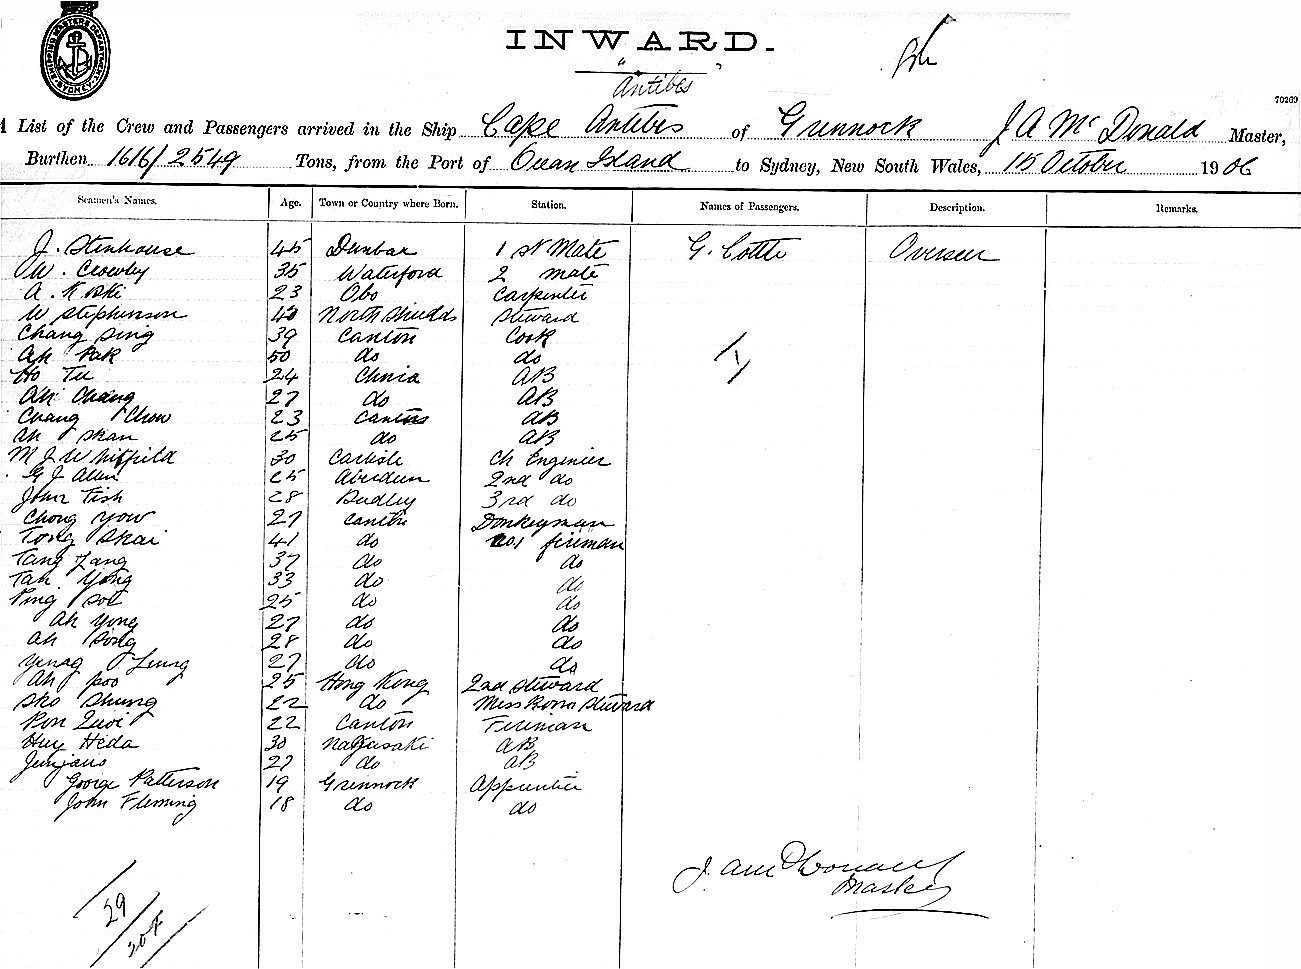 SHIPPING MASTERS DEPARTMENT SYDNEY
INWARD.
"Antibes"
70269
A List of the Crew and Passengers arrived in the Ship Cape Antibes of Greenock J A McDonald Master,
Burthen 1616/2549 Tons, from the Port of Ocean Island to Sydney, New South Wales, 15 October 1906
Seamen's Names. Age. Town or Country where Born. Station. Names of Passengers. Description. Remarks.
J. Stenhouse 45 Dunbar 1st Mate G. Cottle Overseer
W. Crowley 35 Waterford 2 mate
A. Koski 23 Obo Carpenter
W Stephenson North Shields Steward
Chang Sing 39 Canton Cook
Ah Pak 50 do do
Ho Tu 24 China AB
Ah Chang 27 do AB
Chang Chow 23 Canton AB
Ah Skan 25 do AB
M J Whitfield 30 Carlisle Ch Engenier
G J Allen 25 Aberdeen 2nd do
John Fish 28 Dudley 3rd do
Chong Yow 27 Canton Donkeyman
Tong Skai 41 do No1 fireman
Tang Zang 37 do do
Tan Yong 33 do do
Ping Sol 25 do do
Ah Yong 27 do do
Ah Song 28 do do
Leung 27 do do
Ah Poo 25 Hong Kong 2nd Steward
Sko Shung 22 do Mess Room Steward
22 Canton Fireman
Huy Heda 30 Nagasaki AB
27 do AB
George Patterson 19 Greenock Apprentice
John Fleming 18 do do
1
J. A McDonald
Master
29